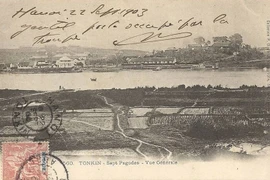 Hanoi 22 Sept 1903
grand poste occupé par la
troupe
TONKIN - Sept Pagodes - Vue Générale